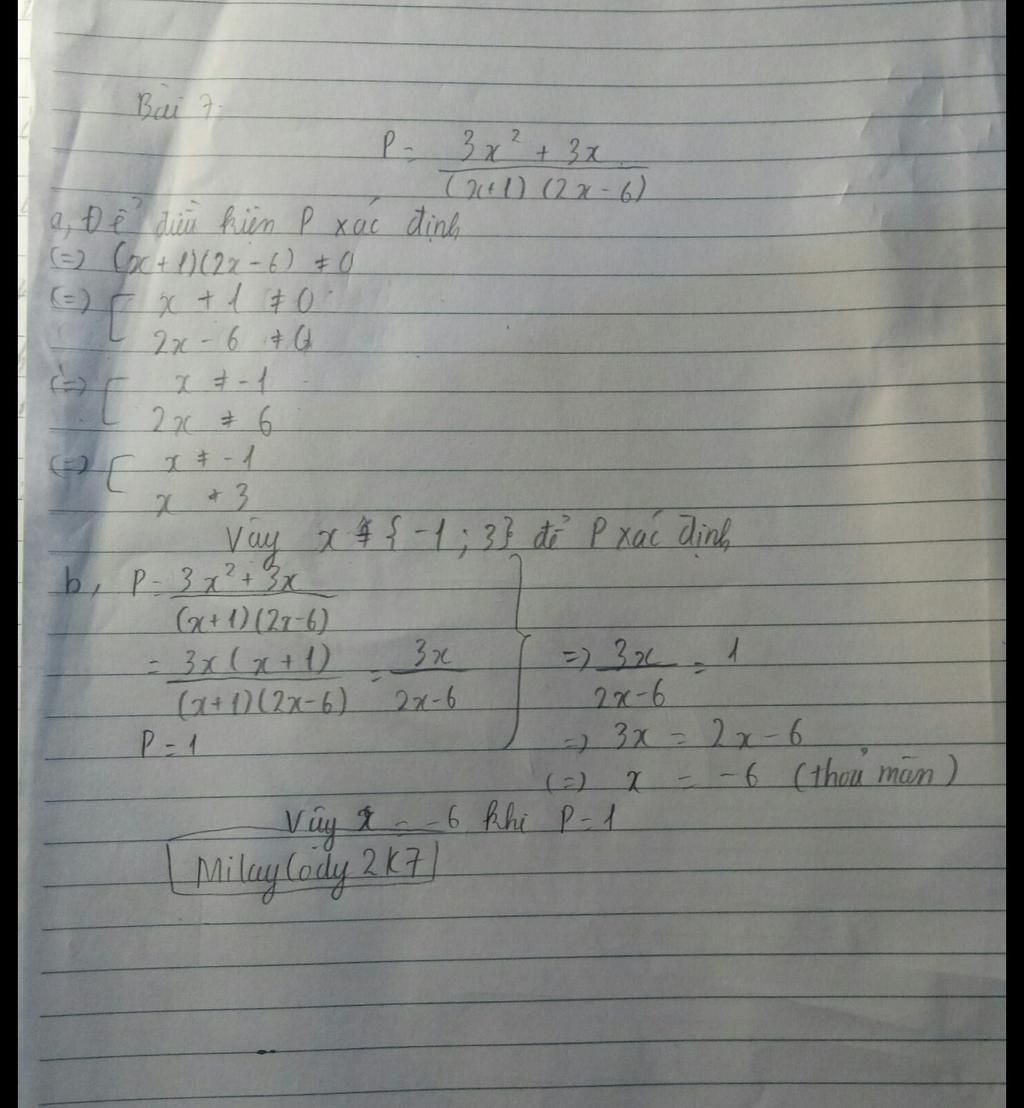 Bài 7.
P = 3x² + 3x / (x+1) (2x - 6)
a, Để điều kiện P xác định
(=) (x + 1)(2x - 6) ≠ 0
(=) [ x + 1 ≠ 0
2x - 6 ≠ 0
(=) [ x ≠ -1
2x ≠ 6
(=) [ x ≠ -1
x ≠ 3
Vậy x ≠ { -1 ; 3} để P xác định
b, P = 3x² + 3x / (x+1)(2x-6)
= 3x(x+1) / (x+1)(2x-6) = 3x / 2x-6
P = 1
=> 3x / 2x-6 = 1
=> 3x = 2x - 6
(=) x = -6 (thoả mãn)
Vậy x = -6 khi P = 1
Milaylody 2K7